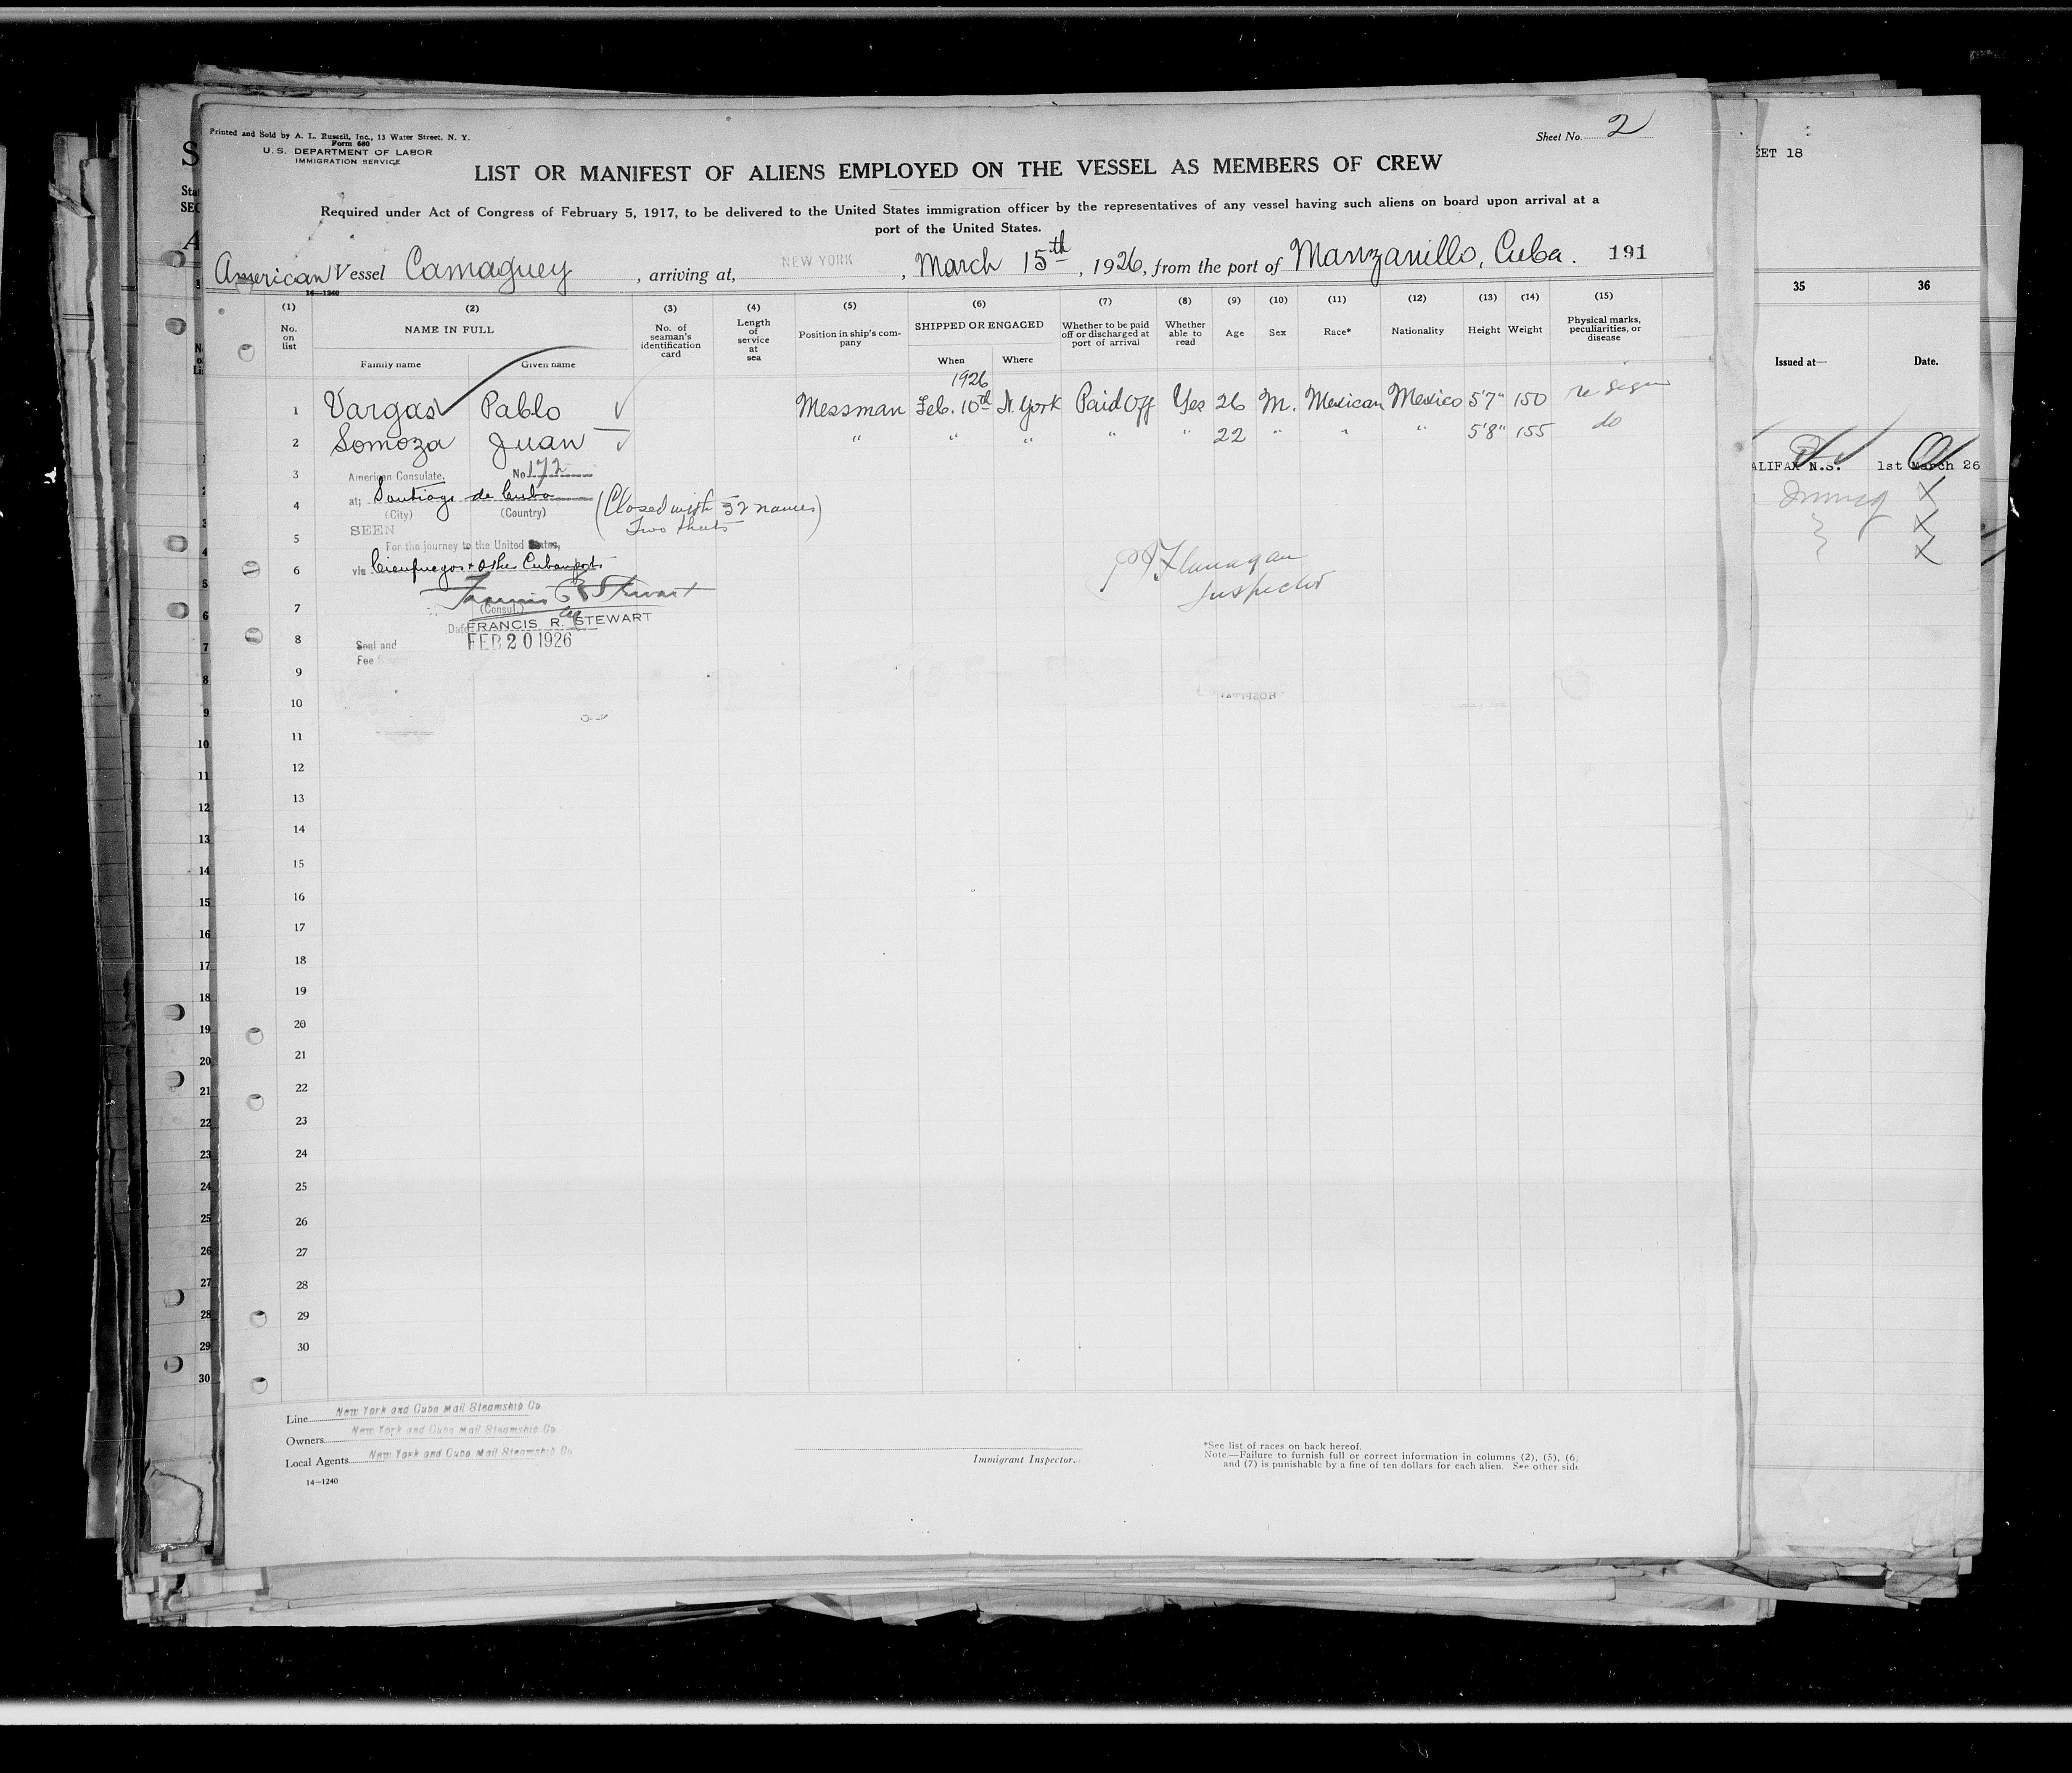 Printed and Sold by A. L. Russell, Inc., 13 Water Street, N. Y.
Form 680
U. S. DEPARTMENT OF LABOR
IMMIGRATION SERVICE
Sheet No. 2
LIST OR MANIFEST OF ALIENS EMPLOYED ON THE VESSEL AS MEMBERS OF CREW
Required under Act of Congress of February 5, 1917, to be delivered to the United States immigration officer by the representatives of any vessel having such aliens on board upon arrival at a
port of the United States.
American Vessel Camaguey, arriving at, NEW YORK, March 15th, 1926, from the port of Manzanillo, Cuba. 191
14—1240
(1) (2) (3) (4) (5) (6) (7) (8) (9) (10) (11) (12) (13) (14) (15)
No. on list
NAME IN FULL
Family name Given name
No. of seaman's identification card
Length of service at sea
Position in ship's company
SHIPPED OR ENGAGED
When Where
Whether to be paid off or discharged at port of arrival
Whether able to read
Age
Sex
Race*
Nationality
Height
Weight
Physical marks, peculiarities, or disease
1926
1 Vargas Pablo Messman Feb. 10th N. York Paid Off Yes 26 M. Mexican Mexico 5'7" 150 re sign
2 Somoza Juan " " " " " 22 " " " 5'8" 155 do
3 American Consulate. No. 172
4 at; Santiago de Cuba (Closed with 32 names
(City) (Country) Two sheets)
SEEN
5 For the journey to the United States,
6 via Cienfuegos + other Cuban ports
P Flanagan
Inspector
Francis R Stewart
7 (Consul.)
Date FRANCIS R. STEWART
8 Seal and FEB 20 1926
Fee
9
10
HOSPITAL
11
12
13
14
15
16
17
18
19
20
21
22
23
24
25
26
27
28
29
30
Line New York and Cuba Mail Steamship Co.
Owners New York and Cuba Mail Steamship Co.
Local Agents New York and Cuba Mail Steamship Co.
14—1240
Immigrant Inspector.
*See list of races on back hereof.
Note.—Failure to furnish full or correct information in columns (2), (5), (6)
and (7) is punishable by a fine of ten dollars for each alien. See other side
EET 18
35 36
Issued at— Date.
ALIFAX N.S. 1st March 26